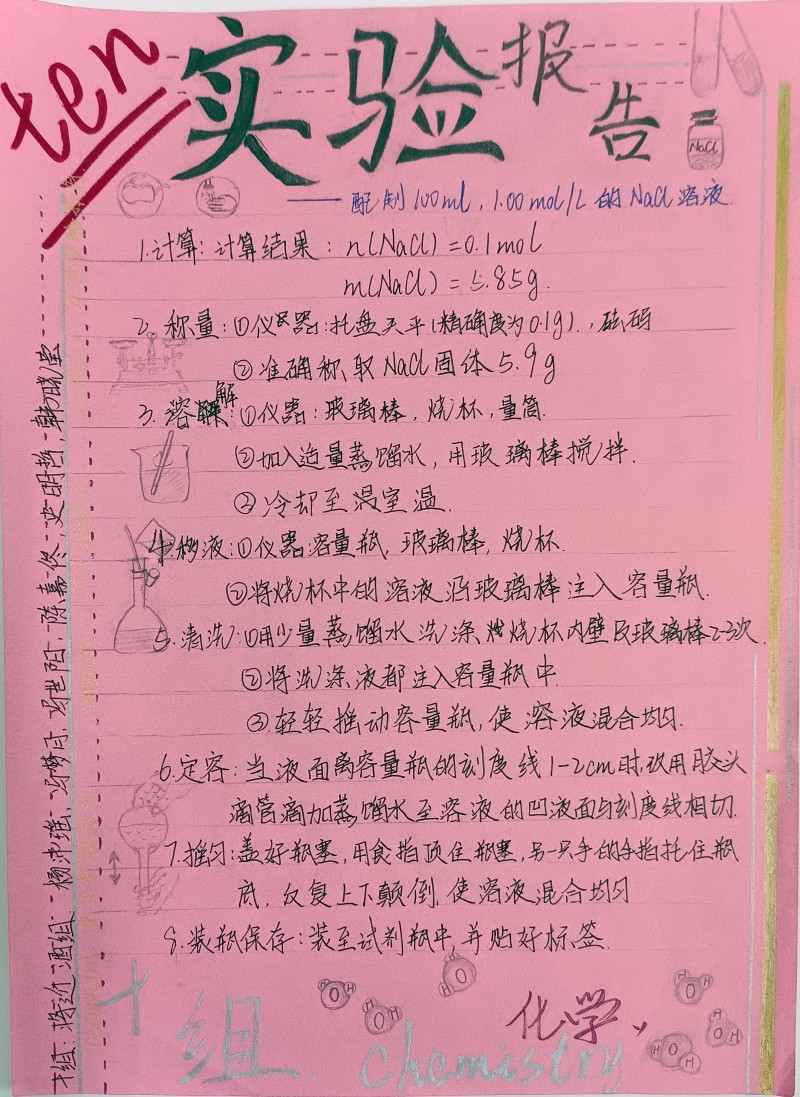 ten
实验报告
NaCl
——配制100ml，1.00mol/L的NaCl溶液.
1.计算：计算结果：n(NaCl)=0.1mol
m(NaCl)=5.85g.
2.称量：①仪器：托盘天平(精确度为0.1g)，砝码
②准确称取NaCl固体5.9g
3.溶解：①仪器：玻璃棒，烧杯，量筒.
②加入适量蒸馏水，用玻璃棒搅拌.
③冷却至温室温.
4.移液：①仪器：容量瓶，玻璃棒，烧杯.
②将烧杯中的溶液沿玻璃棒注入容量瓶.
5.清洗：①用少量蒸馏水洗涤烧杯内壁及玻璃棒2-3次.
②将洗涤液都注入容量瓶中.
③轻轻摇动容量瓶，使溶液混合均匀.
6.定容：当液面离容量瓶的刻度线1-2cm时，改用胶头
滴管滴加蒸馏水至溶液的凹液面与刻度线相切.
7.摇匀：盖好瓶塞，用食指顶住瓶塞，另一只手的手指托住瓶
底，反复上下颠倒，使溶液混合均匀
8.装瓶保存：装至试剂瓶中，并贴好标签.
十组
化学
Chemistry
H O H
H O H
H O
H O H
H O H
H O H
十组：将近酒组 - 冯梦 冯世阳，陈嘉佟，史明哲，韩晓莹